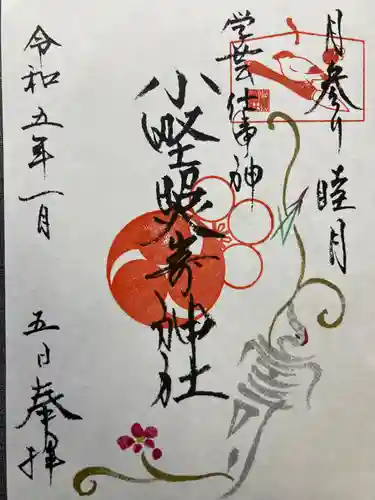 月参り 睦月
学芸 仕事神
小野照崎神社
令和五年一月 五日奉拝